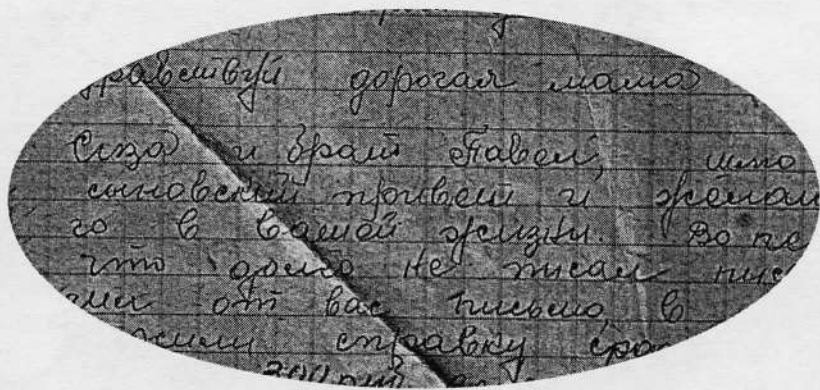 дравствуй дорогая мама
и брат Павел, шлю
сыновский привет и желаю
го в вашей жизни. Во пе
что долго не писал пис
от вас письмо, в
справку сра